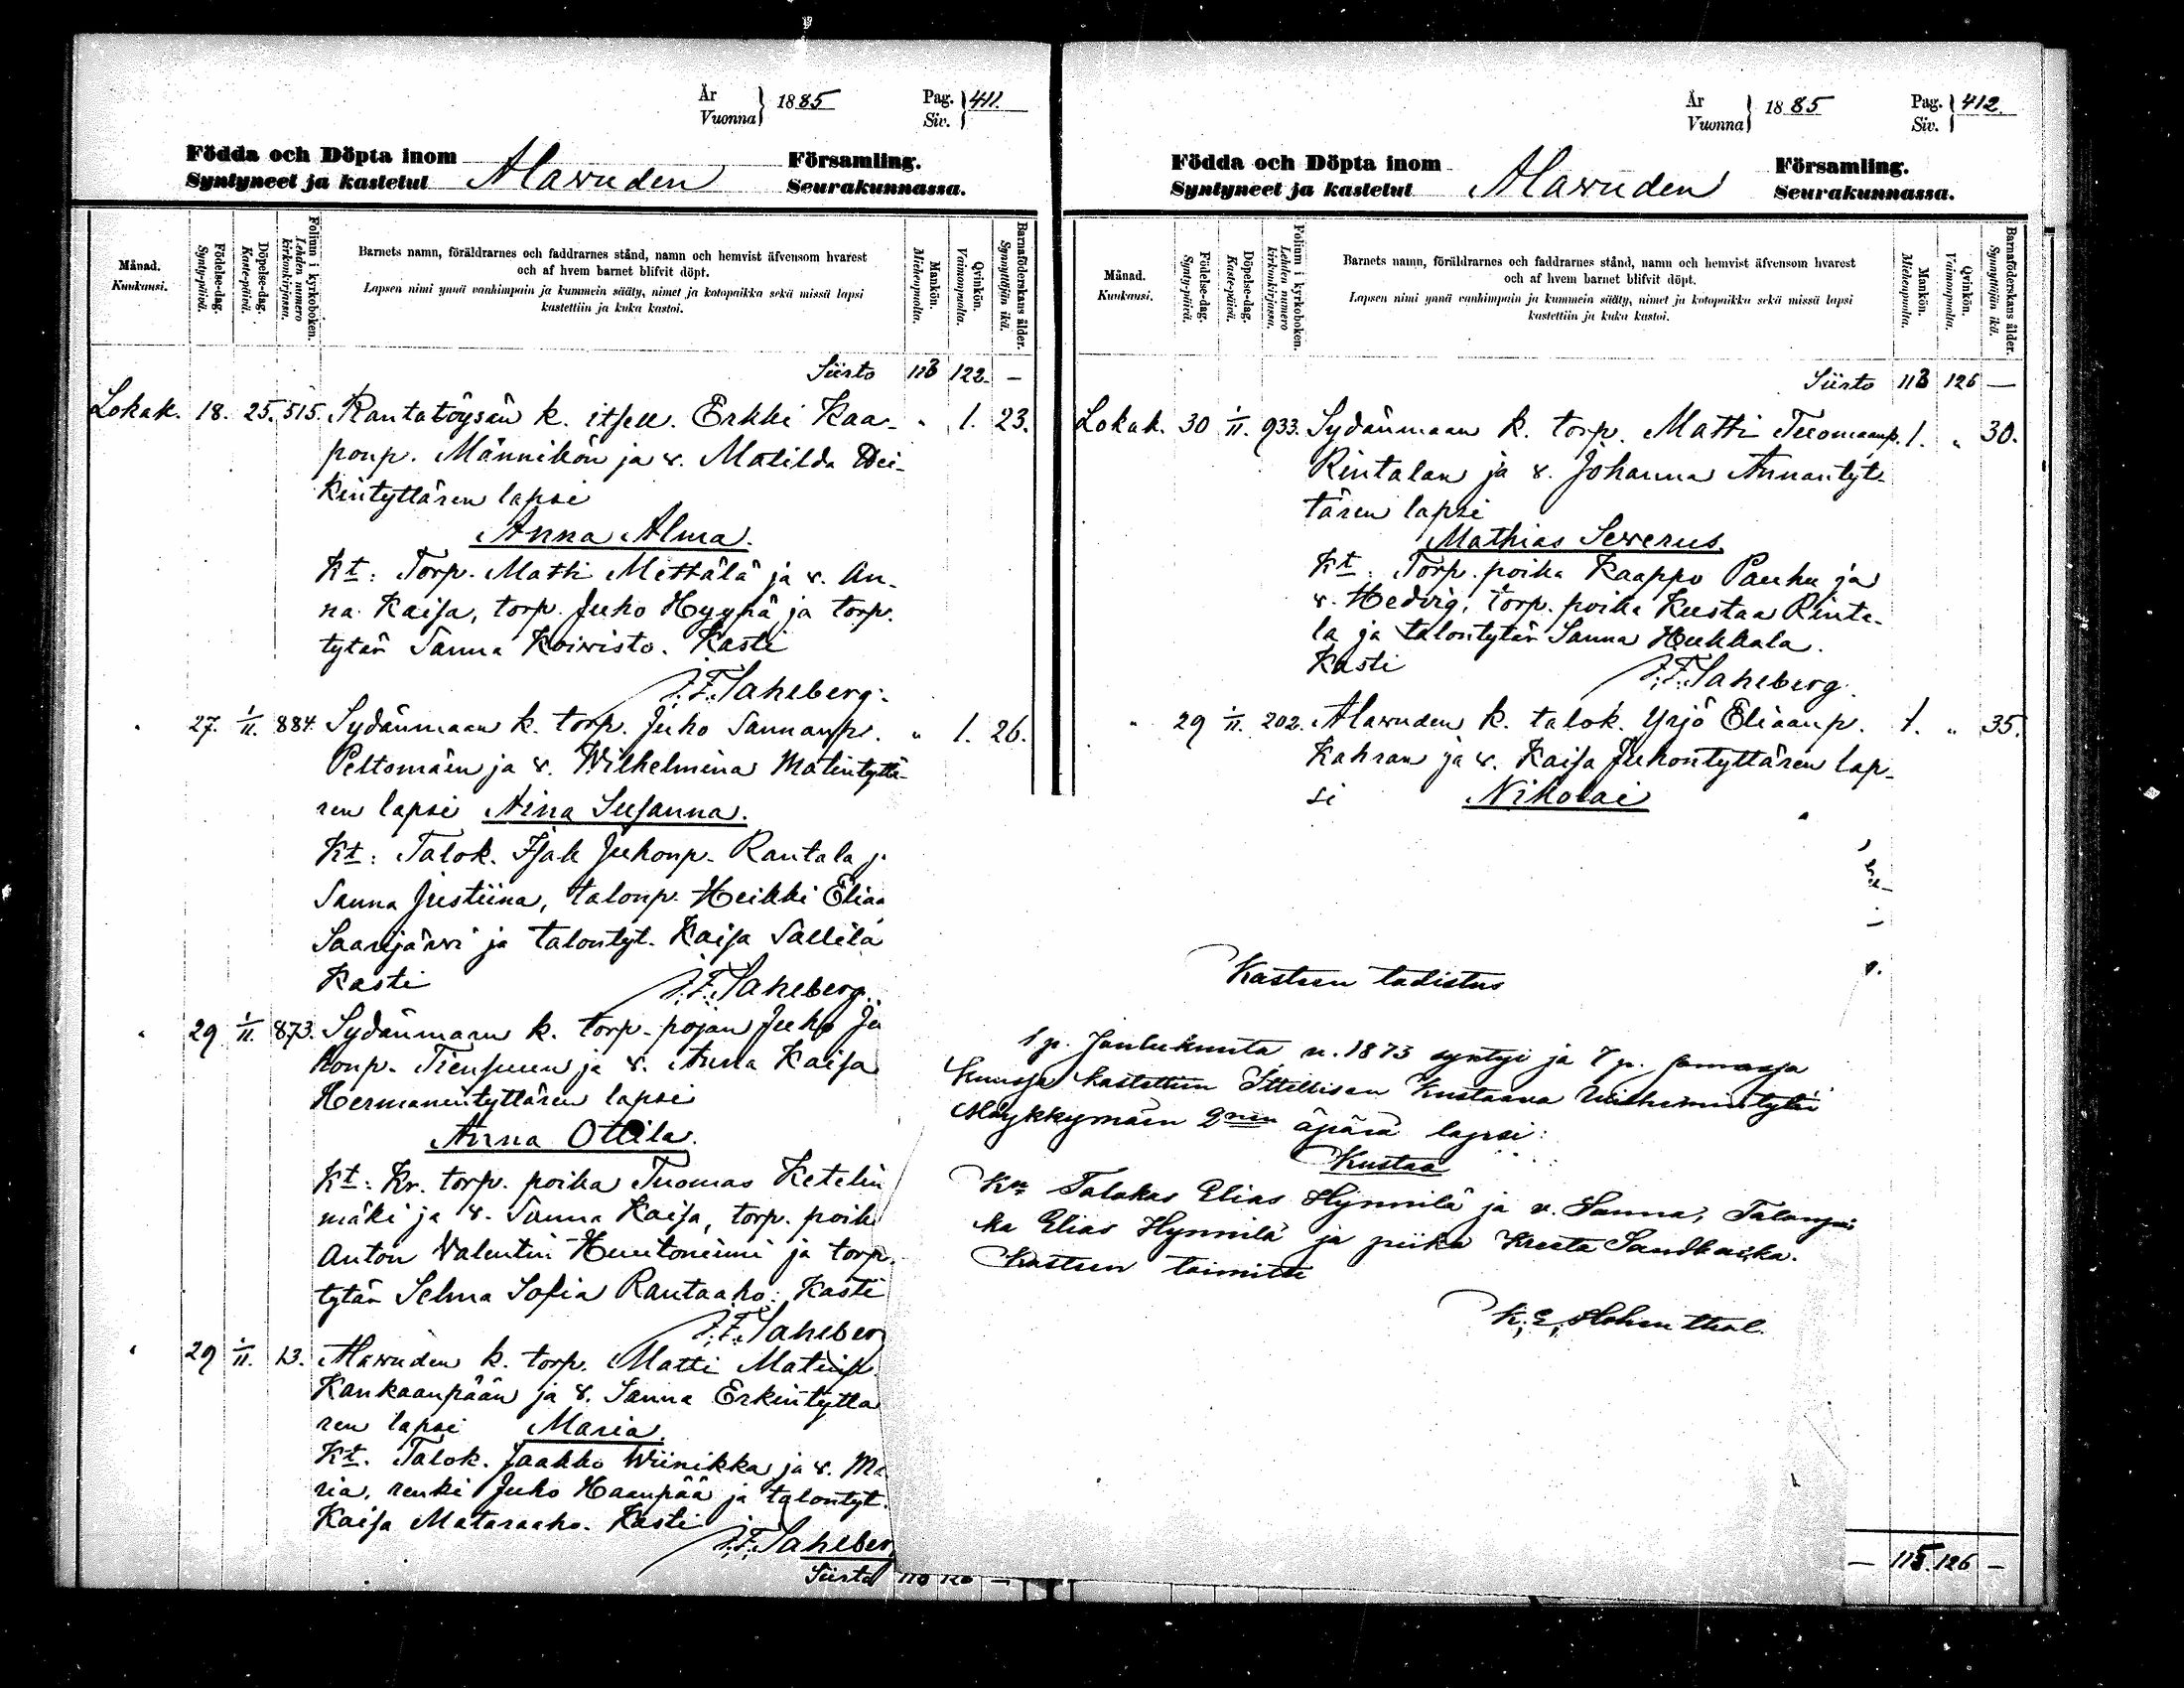 År
Vuonna } 1885
Pag.
Siv. } 411.
Födda och Döpta inom
Syntyneet ja kastetut
Alawuden
Församling.
Seurakunnassa.
Månad.
Kuukausi.
Födelse-dag.
Synty-päivä.
Döpelse-dag.
Kaste-päivä.
Folium i kyrkoboken.
Lehden numero
kirkonkirjassa.
Barnets namn, föräldrarnes och faddrarnes stånd, namn och hemvist äfvensom hvarest
och af hvem barnet blifvit döpt.
Lapsen nimi ynnä vanhimpain ja kummein sääty, nimet ja kotopaikka sekä missä lapsi
kastettiin ja kuka kastoi.
Mankön.
Miehenpuolta.
Qvinkön.
Vaimonpuolta.
Barnaföderskans ålder.
Synnyttäjän ikä.
Siirto 113 122. —
Lokak. 18. 25. 515. Rantatöysän k. itsell. Erkki Kaa- " 1. 23.
ponp. Männikön ja v. Matilda Hei-
kintyttären lapsi
Anna Alma.
Kt: Torp. Matti Mettälä ja v. An-
na Kaisa, torp. Juho Hyypä ja torp.
tytär Sanna Koiwisto. Kasti
J. F. Saheberg.
" 27. 1/11. 884. Sydänmaan k. torp. Juho Sannanp. " 1. 26.
Peltomäen ja v. Wilhelmina Matintyttä-
ren lapsi Aina Susanna.
Kt: Talok. Isak Juhonp. Rantala j
Sanna Justiina, talonp. Heikki Elian
Saarijärvi ja talontyt. Kaisa Sallila
Kasti J. F. Saheberg.
" 29 1/11. 873. Sydänmaan k. torp. pojan Juho Ju
honp. Tiensuun ja v. Anna Kaisa
Hermanintyttären lapsi
Anna Ottila.
Kt: Kr. torp. poika Tuomas Ketelin
mäki ja v. Sanna Kaisa, torp. poik
Anton Valentin Huutoniemi ja torp.
tytär Selma Sofia Rantaaho: Kasti
J. F. Saheber
" 29 1/11. 13. Alawuden k. torp. Matti Matinp.
Kankaanpään ja v. Sanna Erkintyttä
ren lapsi Maria.
Kt. Talok. Jaakko Wiinikka ja v. Ma
ria, renki Juho Haanpää ja talontyt.
Kaisa Mataraaho. Kasti
J. F. Saheber
Siirto
År
Vuonna } 1885
Pag.
Siv. } 412.
Födda och Döpta inom
Syntyneet ja kastetut
Alawuden
Församling.
Seurakunnassa.
Månad.
Kuukausi.
Födelse-dag.
Synty-päivä.
Döpelse-dag.
Kaste-päivä.
Folium i kyrkoboken.
Lehden numero
kirkonkirjassa.
Barnets namn, föräldrarnes och faddrarnes stånd, namn och hemvist äfvensom hvarest
och af hvem barnet blifvit döpt.
Lapsen nimi ynnä vanhimpain ja kummein sääty, nimet ja kotopaikka sekä missä lapsi
kastettiin ja kuka kastoi.
Mankön.
Miehenpuolta.
Qvinkön.
Vaimonpuolta.
Barnaföderskans ålder.
Synnyttäjän ikä.
Siirto 113 126 —
Lokak. 30 1/11. 933. Sydänmaan k. torp. Matti Tuomaanp. 1. " 30.
Rintalan ja v. Johanna Annantyt-
tären lapsi
Mathias Sewerus.
Kt: Torp. poika Kaappo Pauhu ja
v. Hedvig, torp. poika Kustaa Rinta-
la ja talontytär Sanna Hukkala.
Kasti J. F. Saheberg.
" 29 1/11. 202. Alawuden k. talok. Yrjö Eliaanp. 1. " 35.
Kahran ja v. Kaisa Juhontyttären lap-
si Nikolai
Kasteen todistus
1 p. Joulukuuta v. 1873 syntyi ja 7 p. samassa
kuussa kastettiin Ittellisen Kustaava Wilhelmiintytär
Mäykkymäen 2nen äpärä lapsi:
Kustaa
Kt Talokas Elias Hynnilä ja v. Sanna, Talonpoi
ka Elias Hynnilä ja piika Kreeta Sandbacka.
Kasteen toimitti
K. E. Hohenthal.
— 115. 126 —